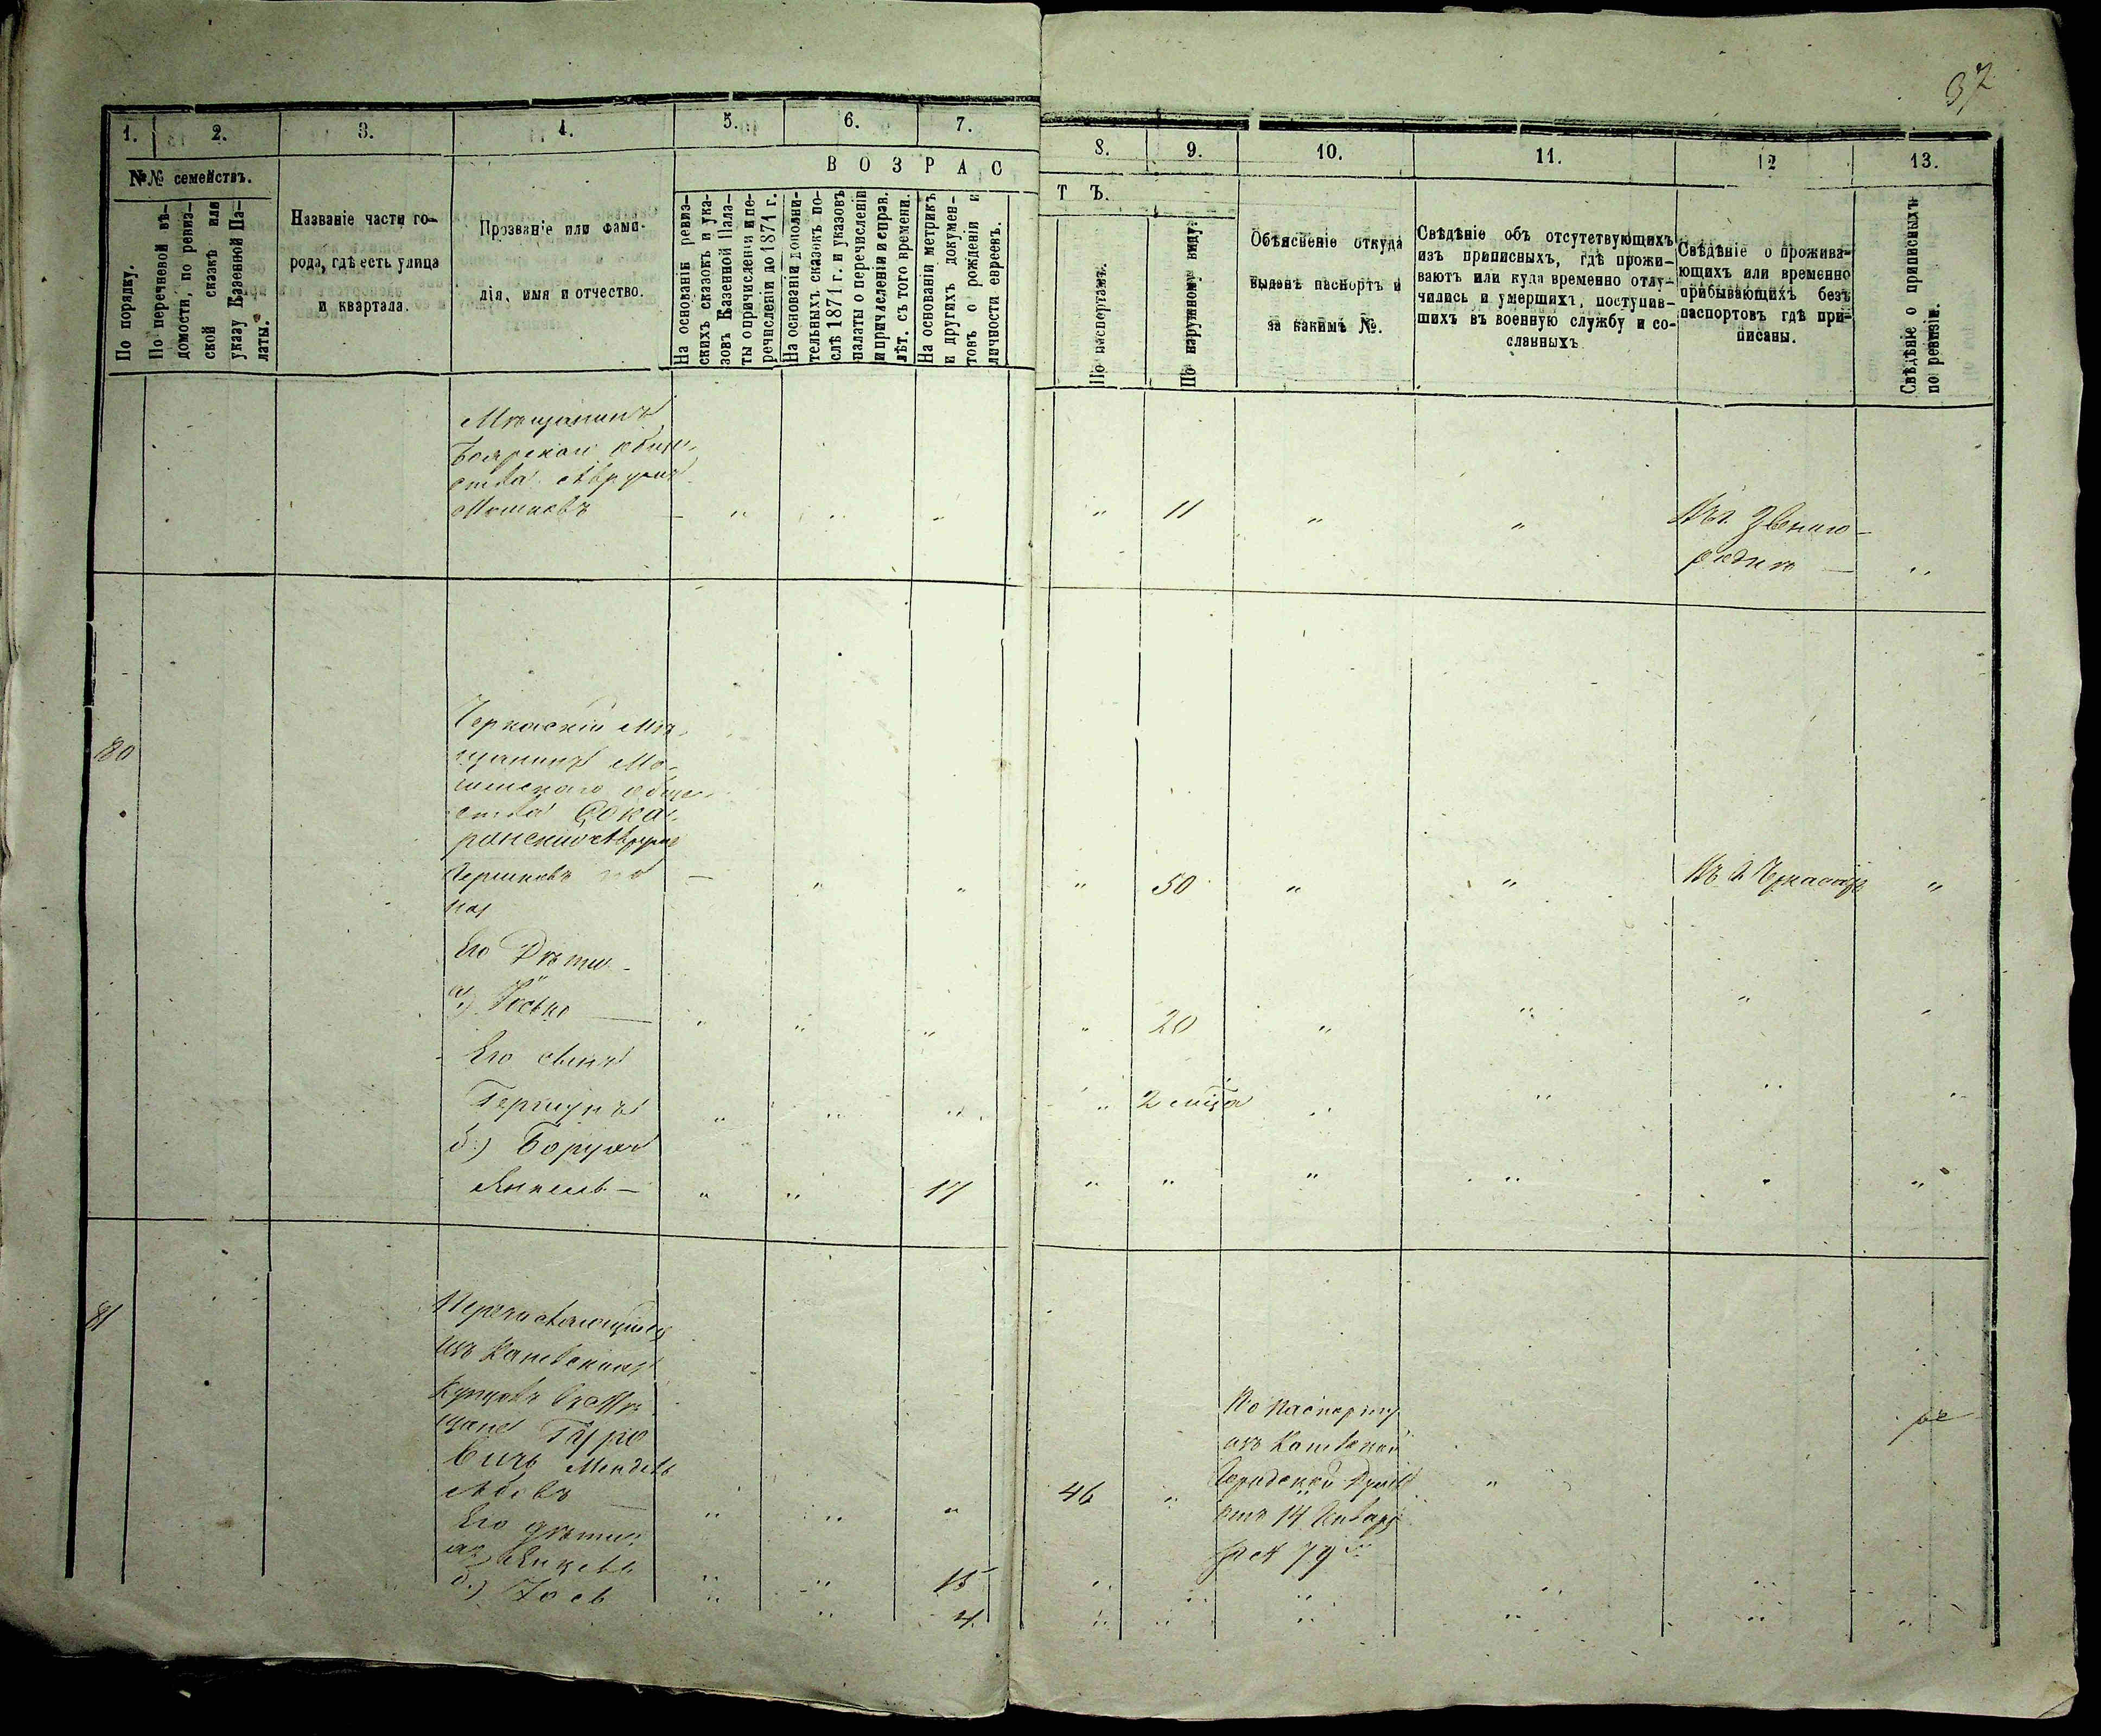 37
1. 2. 3. 4. 5. 6. 7. 8. 9. 10. 11. 12 13.
№№ семействъ.
По порядку.
По перечневой вѣ-
домости, по ревиз-
ской сказкѣ или
указу Казенной Па-
латы.
Названіе части го-
рода, гдѣ есть улица
и квартала.
Прозваніе или фами-
лія, имя и отчество.
ВОЗРАС
ТЪ.
На основаніи ревиз-
скихъ сказокъ и ука-
зовъ Казенной Пала-
ты о причисленіи и пе-
речисленіи до 1871 г.
На основаніи дополни-
тельныхъ сказокъ по-
слѣ 1871 г. и указовъ
палаты о перечисленіи
и причисленіи и справ.
лѣт. съ того времени.
На основаніи метрикъ
и другихъ докумен-
товъ о рожденіи и
личности евреевъ.
По паспортамъ.
По наружному виду.
Объясненіе откуда
выданъ паспортъ и
за какимъ №.
Свѣдѣніе объ отсутетвующихъ
изъ приписныхъ, гдѣ прожи-
ваютъ или куда временно отлу-
чились и умершихъ, поступив-
шихъ въ военную службу и со-
сланныхъ
Свѣдѣніе о прожива-
ющихъ или временно
прибывающихъ безъ
паспортовъ гдѣ при-
писаны.
Свѣдѣніе о приписныхъ
по ревизіи.
Мѣщанинъ
Боярскаго обще-
ства
Мошковъ - " " " " 11 " " Въ г. Звениго-
родкѣ - "
80
Черкаскій Мѣ-
щанинъ Мо-
шенскаго обще-
ства Сока-
ранскій Аврумъ
Гершковъ - " " " 50 " " Въ г. Черкасахъ "
Его Дѣти
а) Іосько - " " " " 20 " " " "
Его сынъ
Гершунъ " " " " 2 мѣца " " " "
б.) Борухъ
Янкель - " " 17 " " " " " "
81
Перечисляющійся
изъ Каневскихъ
Купцовъ въ Мѣ-
щане Гуро
вичъ Мендель
" " " 46 "
По паспорту
изъ Каневской
Городской Думы
отъ 14 Января
за № 79
Его дѣти:
а) Янкель " " 15 " " " " "
б.) Іось " " 4. " " " " " "